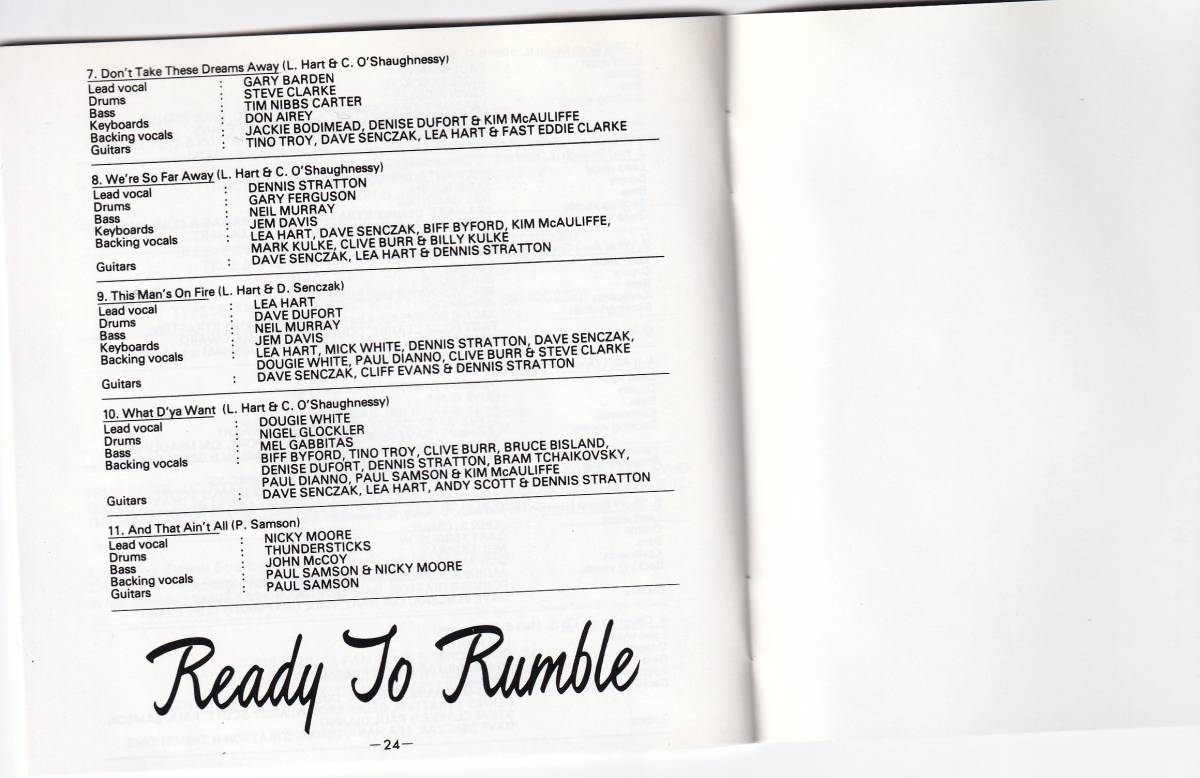 7. Don't Take These Dreams Away (L. Hart & C. O'Shaughnessy)
Lead vocal : GARY BARDEN
Drums : STEVE CLARKE
Bass : TIM NIBBS CARTER
Keyboards : DON AIREY
Backing vocals : JACKIE BODIMEAD, DENISE DUFORT & KIM McAULIFFE
Guitars : TINO TROY, DAVE SENCZAK, LEA HART & FAST EDDIE CLARKE
8. We're So Far Away (L. Hart & C. O'Shaughnessy)
Lead vocal : DENNIS STRATTON
Drums : GARY FERGUSON
Bass : NEIL MURRAY
Keyboards : JEM DAVIS
Backing vocals : LEA HART, DAVE SENCZAK, BIFF BYFORD, KIM McAULIFFE,
MARK KULKE, CLIVE BURR & BILLY KULKE
Guitars : DAVE SENCZAK, LEA HART & DENNIS STRATTON
9. This Man's On Fire (L. Hart & D. Senczak)
Lead vocal : LEA HART
Drums : DAVE DUFORT
Bass : NEIL MURRAY
Keyboards : JEM DAVIS
Backing vocals : LEA HART, MICK WHITE, DENNIS STRATTON, DAVE SENCZAK,
DOUGIE WHITE, PAUL DIANNO, CLIVE BURR & STEVE CLARKE
Guitars : DAVE SENCZAK, CLIFF EVANS & DENNIS STRATTON
10. What D'ya Want (L. Hart & C. O'Shaughnessy)
Lead vocal : DOUGIE WHITE
Drums : NIGEL GLOCKLER
Bass : MEL GABBITAS
Backing vocals : BIFF BYFORD, TINO TROY, CLIVE BURR, BRUCE BISLAND,
DENISE DUFORT, DENNIS STRATTON, BRAM TCHAIKOVSKY,
PAUL DIANNO, PAUL SAMSON & KIM McAULIFFE
Guitars : DAVE SENCZAK, LEA HART, ANDY SCOTT & DENNIS STRATTON
11. And That Ain't All (P. Samson)
Lead vocal : NICKY MOORE
Drums : THUNDERSTICKS
Bass : JOHN McCOY
Backing vocals : PAUL SAMSON & NICKY MOORE
Guitars : PAUL SAMSON
Ready To Rumble
—24—